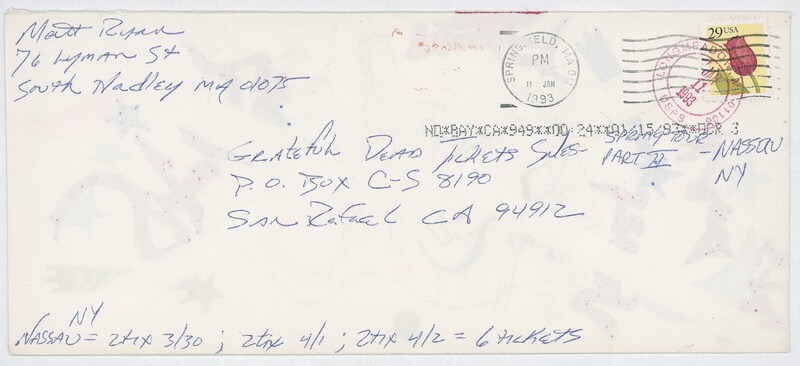 Matt Ryan
76 Lyman St
South Hadley MA 01075
SPRINGFIELD, MA 011
PM
11 JAN
1993
LONGMEADOW
JAN 11
1993
USPS 01106
29 USA
ND*BAY*CA*949**DD 24**01/15/93**
Grateful Dead Tickets Sales-
P.O. Box C-S 8190
San Rafael CA 94912
SPRING TOUR
PART II - NASSAU
NY
NY
NASSAU = 2tix 3/30 ; 2tix 4/1 ; 2tix 4/2 = 6 tickets